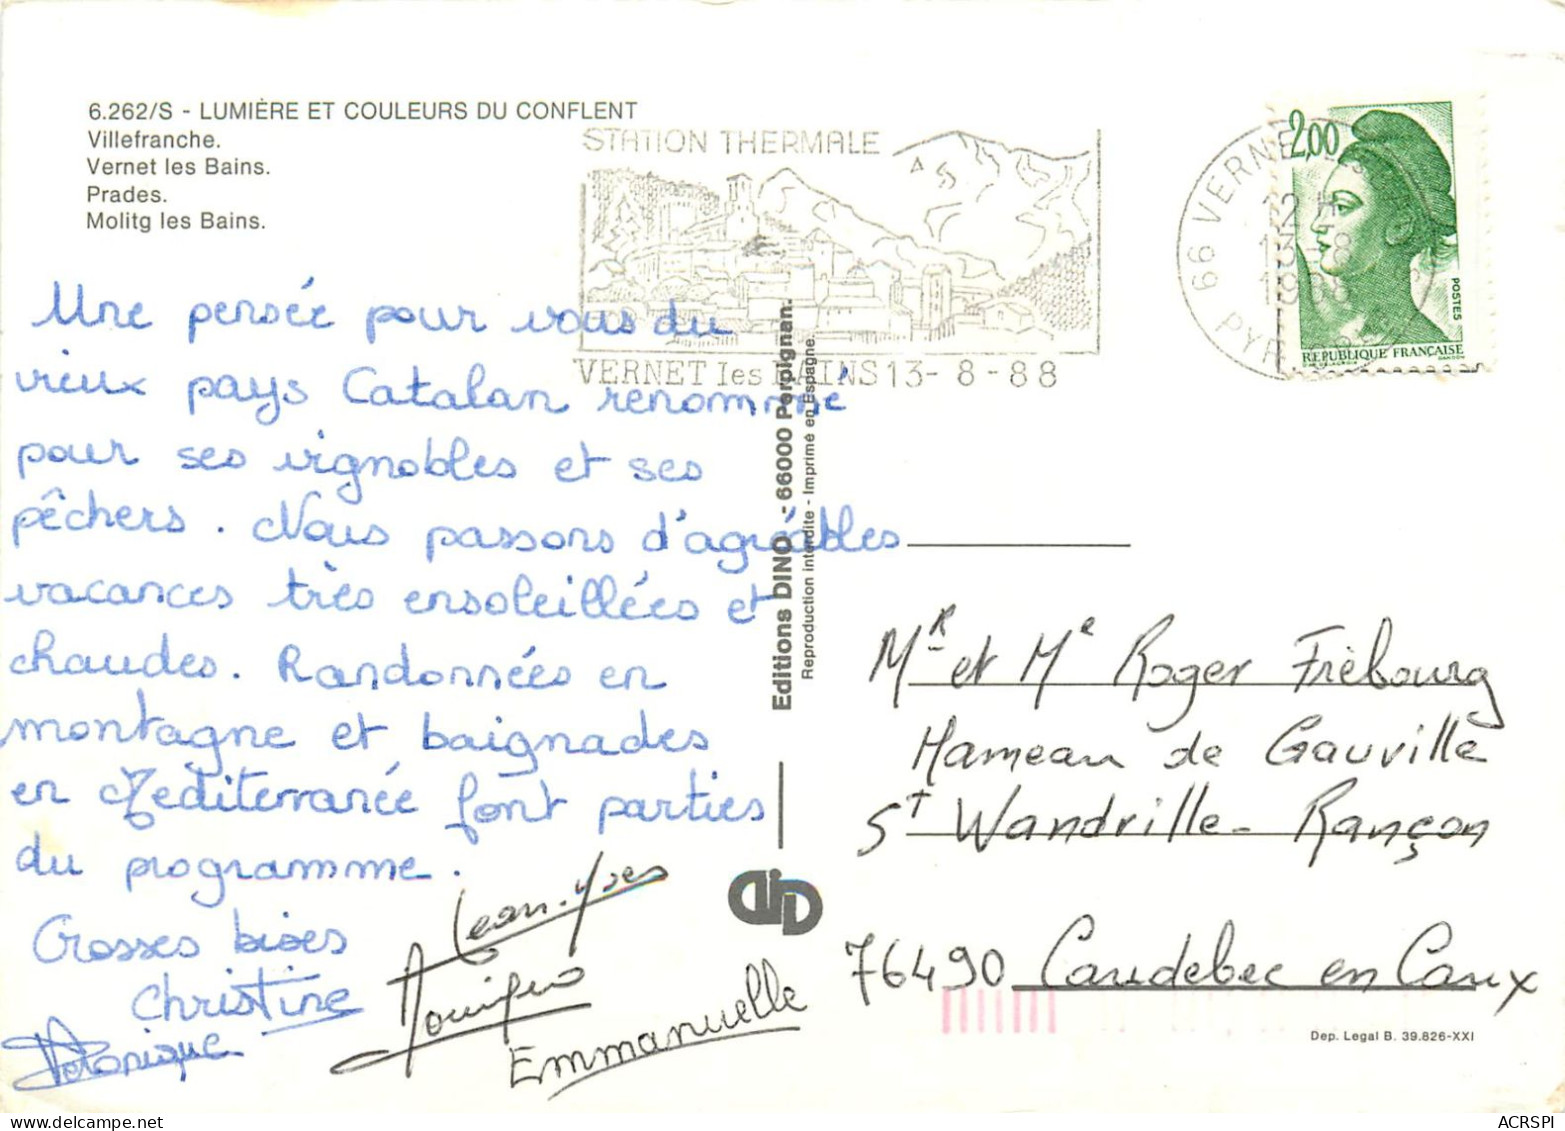 6.262/S - LUMIÈRE ET COULEURS DU CONFLENT
Villefranche.
Vernet les Bains.
Prades.
Molitg les Bains.
STATION THERMALE
VERNET les BAINS 13-8-88
66 VERNET les
12 H
13-8
1988
PYR
2,00
POSTES
REPUBLIQUE FRANÇAISE
Une pensée pour vous du
vieux pays Catalan renommé
pour ses vignobles et ses
pêchers. Nous passons d'agréables
vacances très ensoleillées et
chaudes. Randonnées en
montagne et baignades
en Méditerranée font parties
du programme.
Grosses bises
Christine
Véronique
Jean-Yves
Emmanuelle
Editions DINO - 66000 Perpignan.
Reproduction interdite - Imprimé en Espagne.
Mr et Me Roger Frébourg
Hameau de Gauville
St Wandrille-Rançon
76490 Caudebec en Caux
Dep. Legal B. 39.826-XXI
ACRSPI